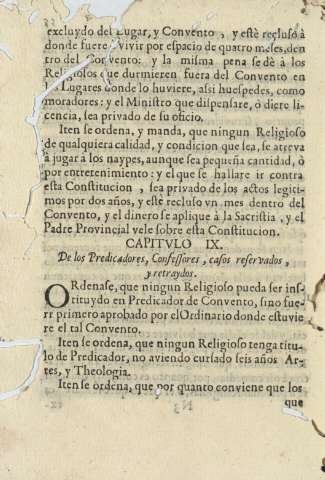 excluydo del Lugar, y Convento, y estè recluso à
donde fuere vivir por espacio de quatro meses, den
tro del Convento: y la misma pena se dè à los
Religiosos que durmieren fuera del Convento en
los Lugares donde lo huviere, asi huespedes, como
moradores: y el Ministro que dispensare, ò diere li-
cencia, sea privado de su oficio.
Iten se ordena, y manda, que ningun Religioso
de qualquiera calidad, y condicion que sea, se atreva
à jugar à los naypes, aunque sea pequeña cantidad, ò
por entretenimiento: y el que se hallare ir contra
esta Constitucion, sea privado de los actos legiti-
mos por dos años, y estè recluso vn mes dentro del
Convento, y el dinero se aplique à la Sacristia, y el
Padre Provincial vele sobre esta Constitucion.
CAPITVLO IX.
De los Predicadores, Confessores, casos reservados,
y retraydos.
ORdenase, que ningun Religioso pueda ser ins-
tituydo en Predicador de Convento, sino fue-
re primero aprobado por el Ordinario donde estuvie
re el tal Convento.
Iten se ordena, que ningun Religioso tenga titu-
lo de Predicador, no aviendo cursado seis años Ar-
tes, y Theologia.
Iten se ordena, que por quanto conviene que los
que